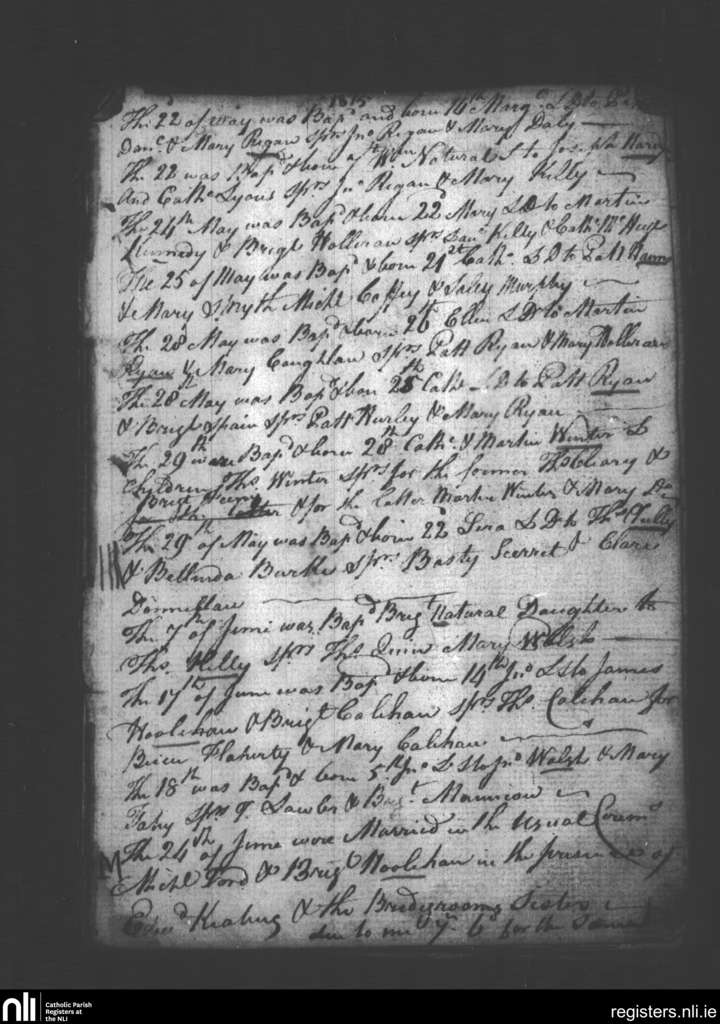 1815
The 22 of May was Bapd and born 16th Margt L D to
Danl & Mary Regan Sprs Jno Regan & Mary Daly
The 22 was Bapd & born Wm Natural S to Joseph
And Cathe Lyons Sprs Jno Regan & Mary Kelly
The 24th May was Bapd & born 22d Mary L D to Martin
Kennedy & Brigt Holleran Sprs Danl Kelly & Cathe
The 25 of May was Bapd & born 21st Cathe L D to Patt
& Mary Smyth Michl Coffey & Saley Murphy
The 28 May was Bapd & born 26th Ellen L D to Martin
Ryan & Mary Coughlan Sprs Patt Ryan & Mary Holleran
The 28th May was Bapd & born 25th Cathe L D to Patt Ryan
& Brigt Spain Sprs Patt Hurley & Mary Ryan
The 29th were Bapd & born 28th Cathe & Martin Winter L
Children Ths Winter Sprs for the former Ths Cleary &
Brigt
for the latter & for the latter Martin Winter & Mary
The 29th of May was Bapd & born 22d L D to Ths Clully
& Bellinda Burke Sprs Basty Scerret & Clare
Donnellan
The 7th of June was Bapd Brigt Natural Daughter to
Ths Killy Sprs Ths Quin Mary Walsh
The 17th of June was Bapd & born 14th Jno L S to James
Hoolehan & Brigt Calehan Sprs Ths Calehan for
Brien Flaherty & Mary Calehan
The 18th was Bapd & born 5th Jno L S to Jno Walsh & Mary
Fahy Sprs Lawler & Brigt Mannion
M The 24th of June were Married in the usual Cerem
Michl Ford & Brigt Hoolehan in the presence of
Edwd Keating & the Bridegrooms Sister
due to me for the Same
nli
Catholic Parish
Registers at
the NLI
registers.nli.ie